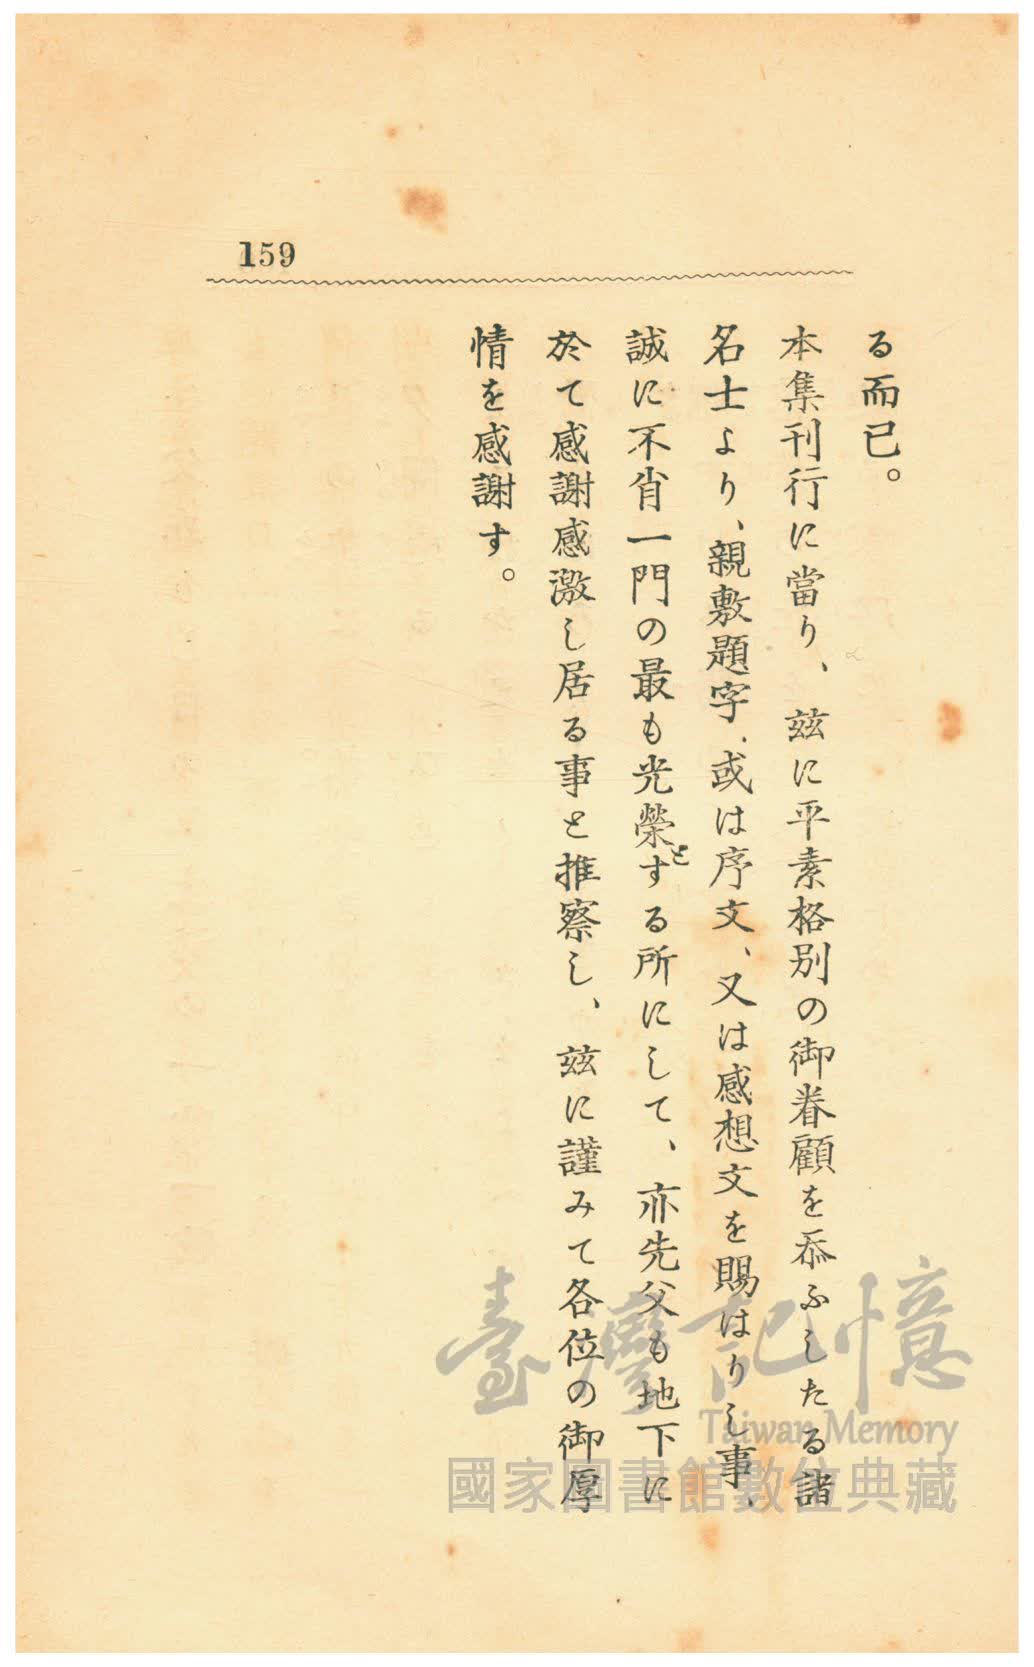 159
る而已。
本集刊行に當り、玆に平素格別の御眷顧を忝ふしたる諸
名士より、親敷題字、或は序文、又は感想文を賜はりし事、
誠に不肖一門の最も光榮とする所にして、亦先父も地下に
於て感謝感激し居る事と推察し、玆に謹みて各位の御厚
情を感謝す。
臺灣記憶
Taiwan Memory
國家圖書館數位典藏